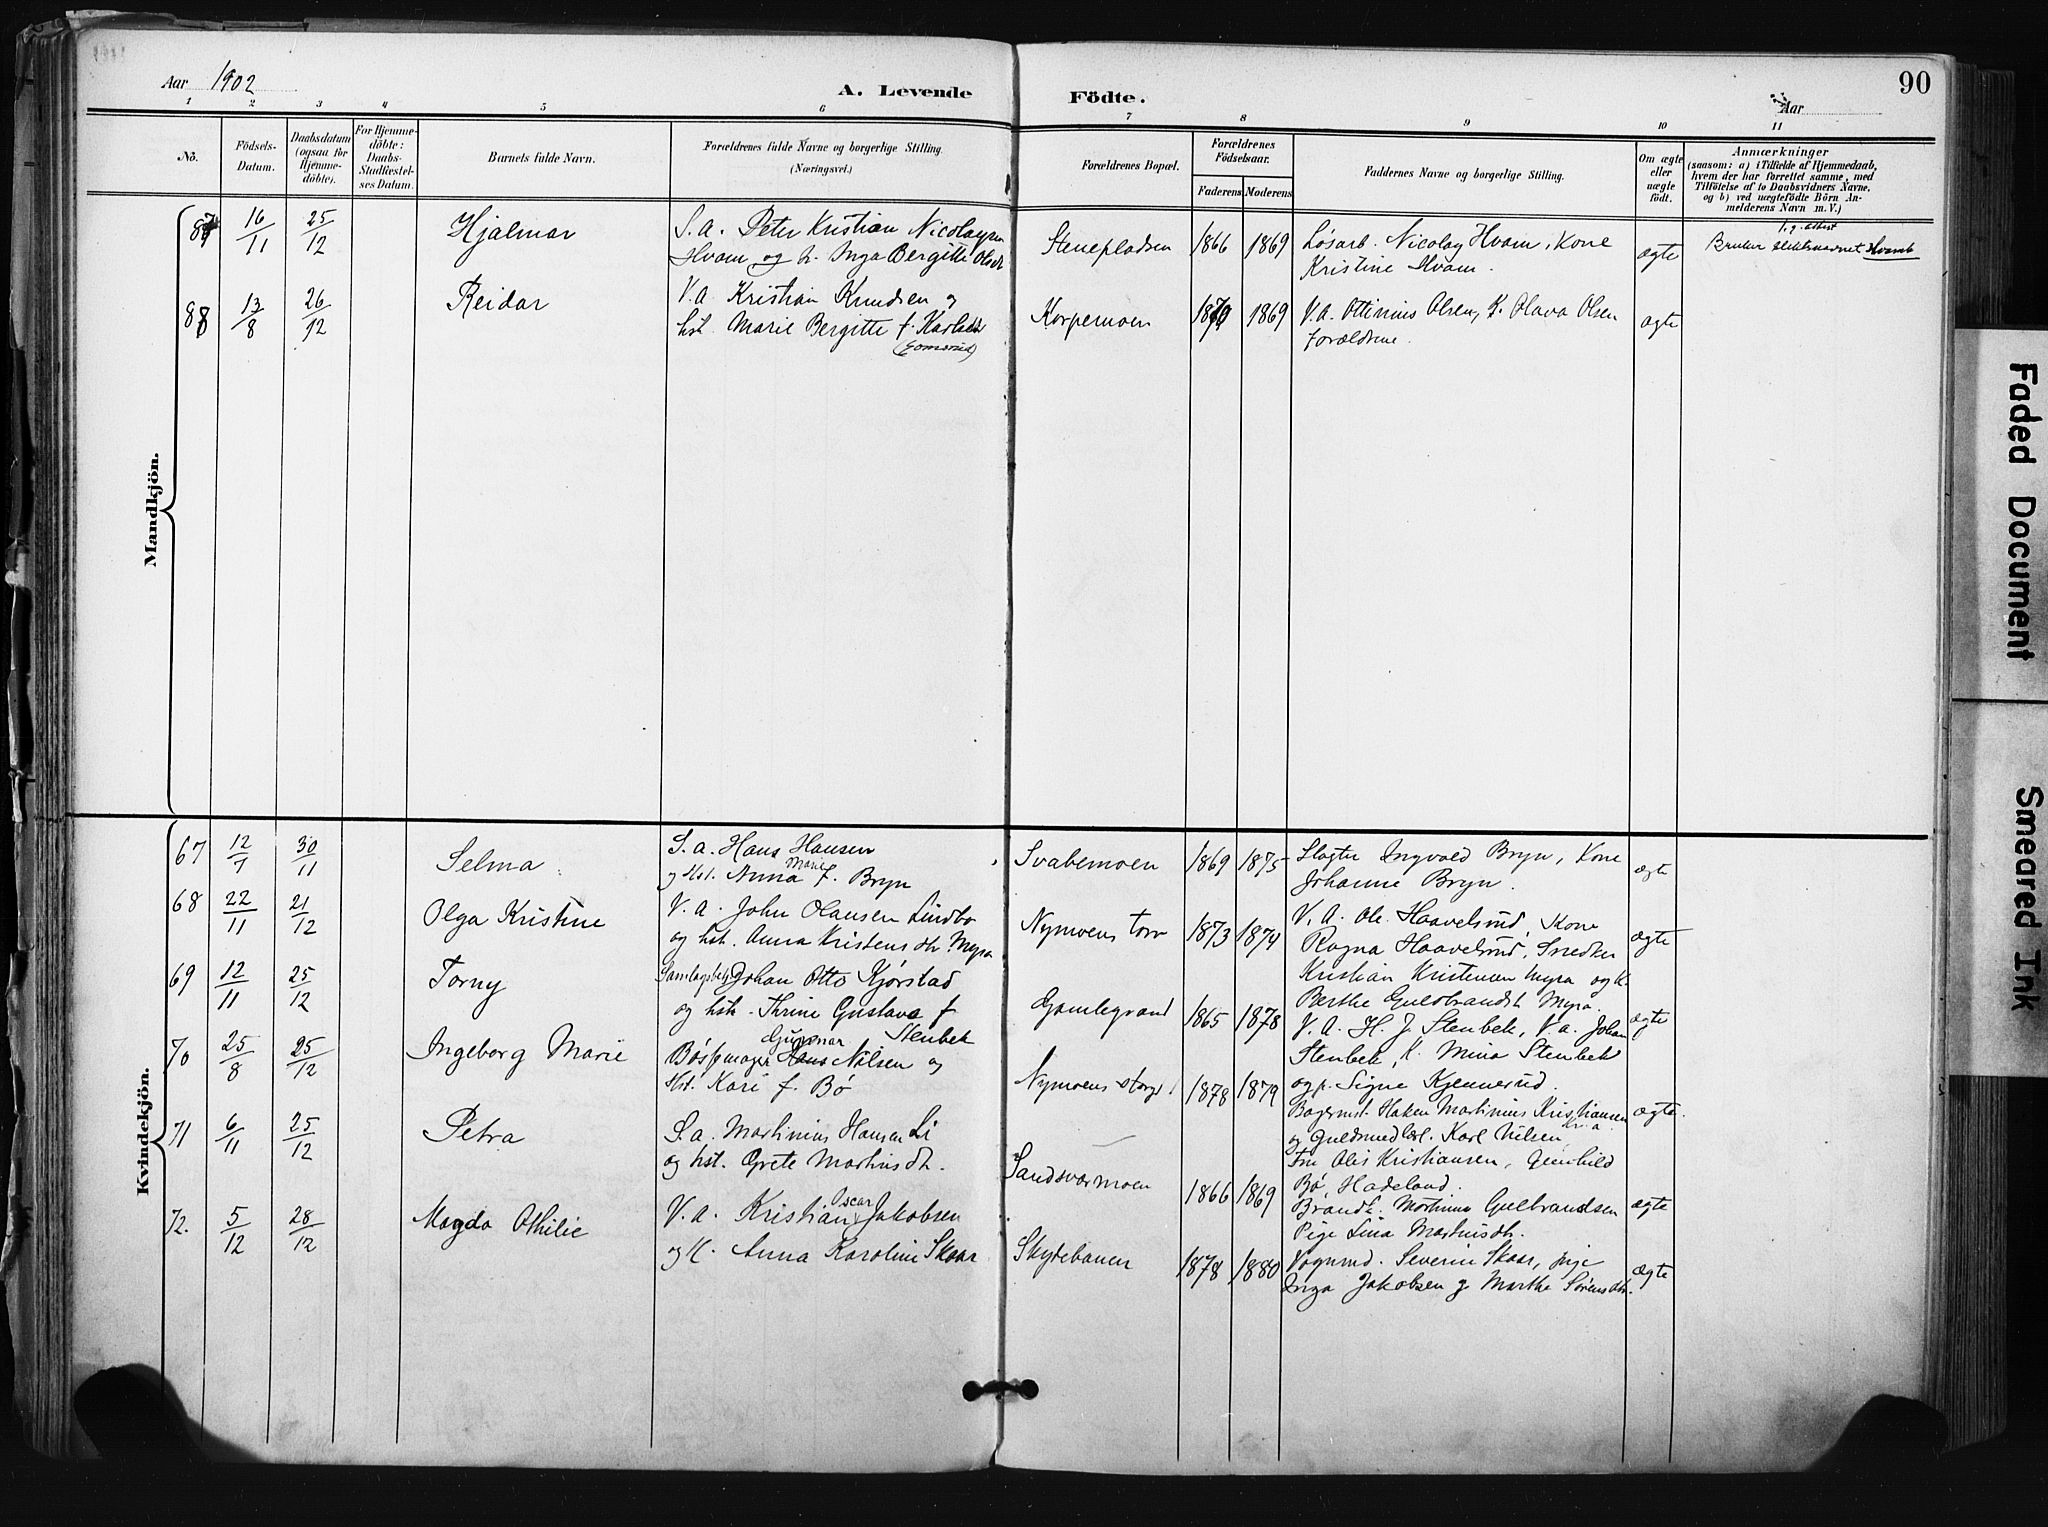 Aar 1902
A. Levende Födte.
Aar
90
1 2 3 4 5 6 7 8 9 10 11
No.
Födsels-
Datum.
Daabsdatum
(ogsaa for
Hjemme-
döbte).
For Hjemme-
döbte:
Daabs-
Stadfæstel-
ses Datum.
Barnets fulde Navn.
Forældrenes fulde Navne og borgerlige Stilling.
(Næringsvei.)
Forældrenes Bopæl.
Forældrenes
Födselsaar.
Faderens Moderens
Faddernes Navne og borgerlige Stilling.
Om ægte
eller
uægte
födt.
Anmærkninger
(saasom: a) i Tilfælde af Hjemmedaab,
hvem der har forrettet samme, med
Tilföielse af to Daabsvidners Navne,
og b) ved uægtefödte Börn An-
melderens Navn m. V.)
Mandkjön.
87 16/11 25/12 Hjalmar
S. a. Peter Kristian Nicolaysen
Hvam og h. Inga Bergitte Olsdt
Stenepladsen 1866 1869
Løsarb. Nicolay Hvam, Kone
Kristine Hvam.
ægte
Bruker slektsnavnet Hvamb
88 13/8 26/12 Reidar
V. A. Kristian Knudsen og
hst. Marie Bergitte f. Karlsen
(Gomsrud)
Korpemoen 1870 1869
V. A. Ottinius Olsen, K. Olava Olsen
forældrene.
ægte
Kvindekjön.
67 12/7 30/11 Selma
S. a. Hans Hansen
og Hst. Anna Marie f. Bryn
Svabemoen 1869 1875
Slagter Ingvald Bryn, Kone
Johanne Bryn.
ægte
68 22/11 21/12 Olga Kristine
V. A. John Olausen Lindbo
og hst. Anna Kristensdtr. Myra
Nymoens torv 1873 1874
V. A. Ole Haavelsrud, Kone
Ragna Haavelsrud, Snedker
Kristian Kristensen Myra og K.
Berthe Guldbrandsdt Myra.
ægte
69 12/11 25/12 Torny
Johan Otto Kjørstad
og hst. Thrine Gustava f
Stenbek
Gamlegrand 1865 1878
V. A. H. J. Stenbek, V. a. Johan
Stenbek, K. Mina Stenbek
og p. Signe Kjennerud.
ægte
70 25/8 25/12 Ingeborg Marie
Bøssemager Gunnar Nilsen og
Hst. Kari f. Bø
Nymoens storgt 1878 1879
Bagermst. Haken Martinius Kristiansen
og Guldsmedlærl. Karl Nilsen, Kr.a.
Fru Olis Kristiansen, Gunhild
Bø, Hadeland.
ægte.
71 6/11 25/12 Petra
S. a. Martinius Hansen Li
og hst. Grete Martinsdtr.
Sandsværmoen 1866 1869
Brandk. Martinus Gulbrandsen
Pige Lina Martinsdtr.
ægte
72. 5/12 28/12 Magda Othilie
V. a. Kristian Oscar Jakobsen
og K. Anna Karoline Skaar
Skytebanen 1878 1880
Vognmd. Severin Skaar, pige
Inga Jakobsen og Marthe Sørensdtr.
ægte
Faded Document
Smeared Ink